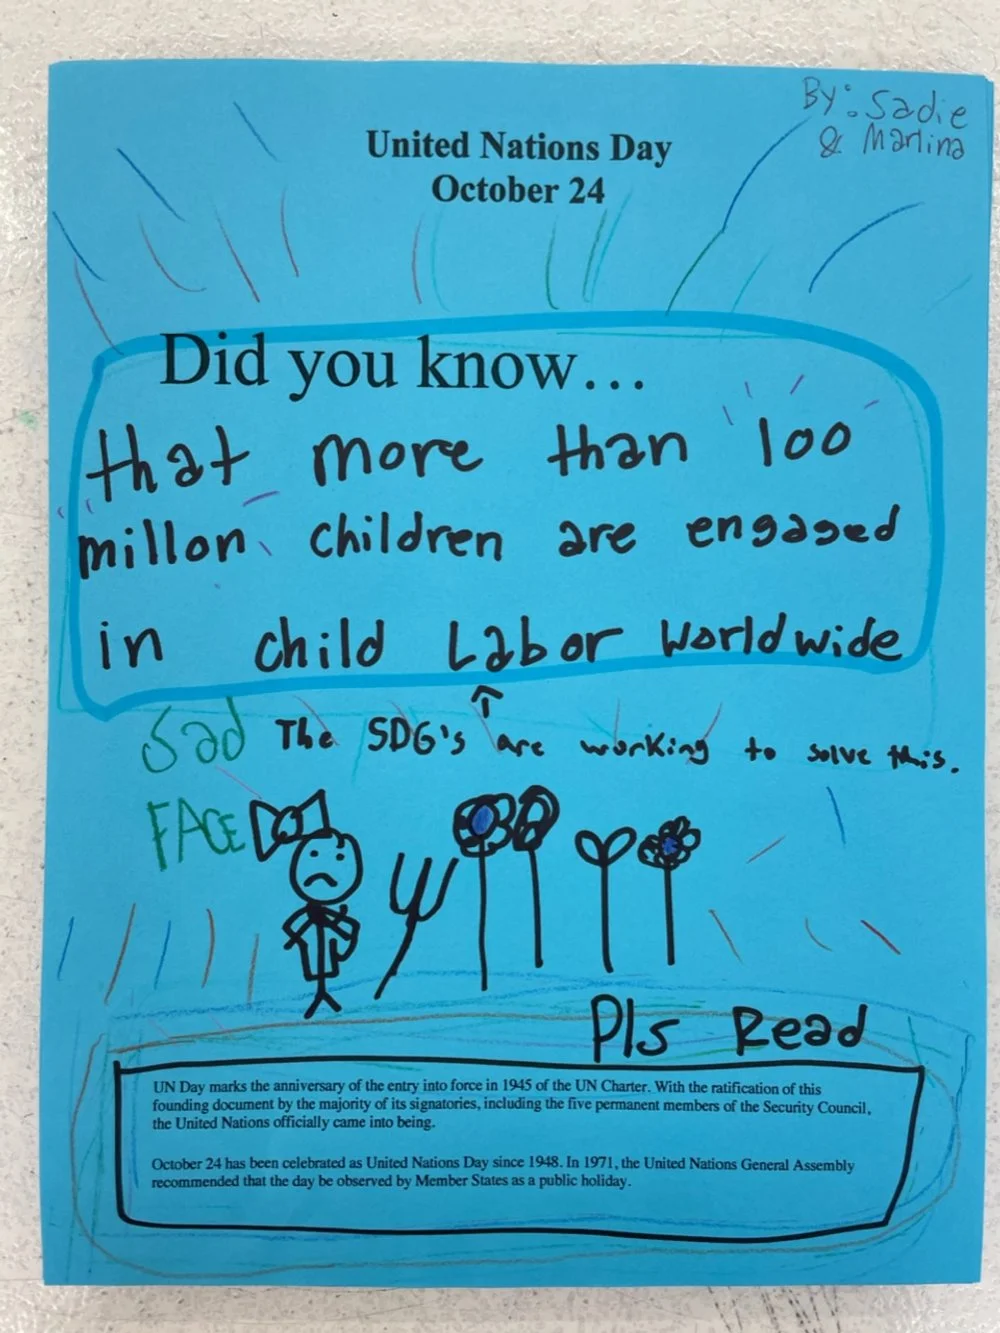 By: Sadie
& Marlina
United Nations Day
October 24
Did you know...
that more than 100
millon children are engaged
in child Labor worldwide
Sad
The SDG's are working to solve this.
FACE
Pls Read
UN Day marks the anniversary of the entry into force in 1945 of the UN Charter. With the ratification of this
founding document by the majority of its signatories, including the five permanent members of the Security Council,
the United Nations officially came into being.
October 24 has been celebrated as United Nations Day since 1948. In 1971, the United Nations General Assembly
recommended that the day be observed by Member States as a public holiday.